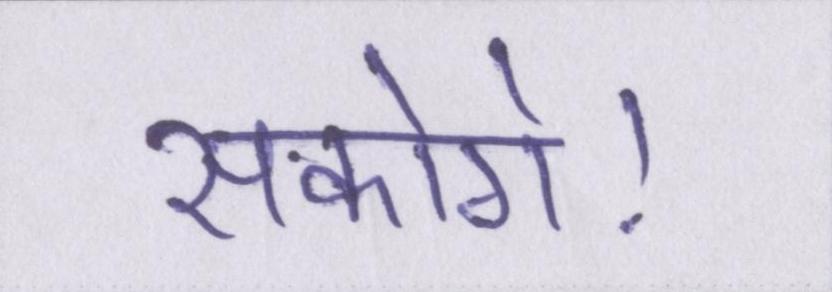 सकोगे!